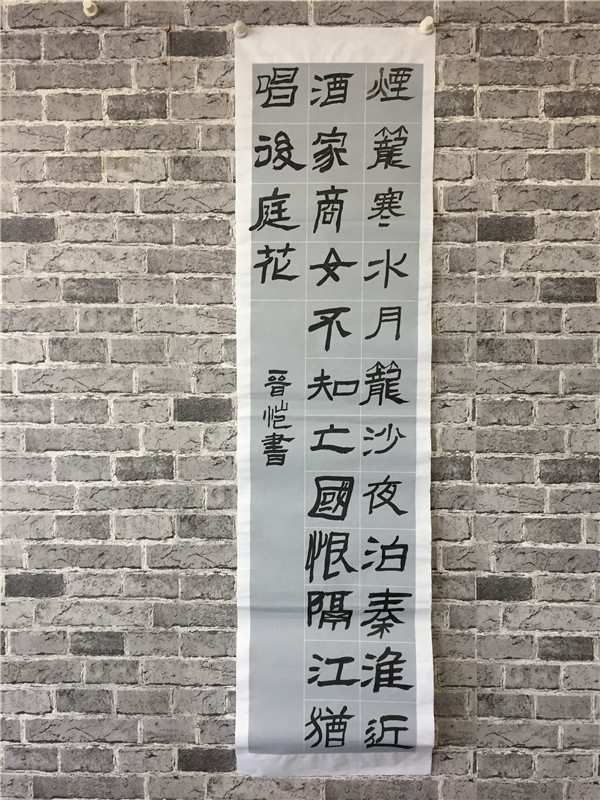 煙籠寒水月籠沙夜泊秦淮近
酒家商女不知亡國恨隔江猶
唱後庭花
晉恺書